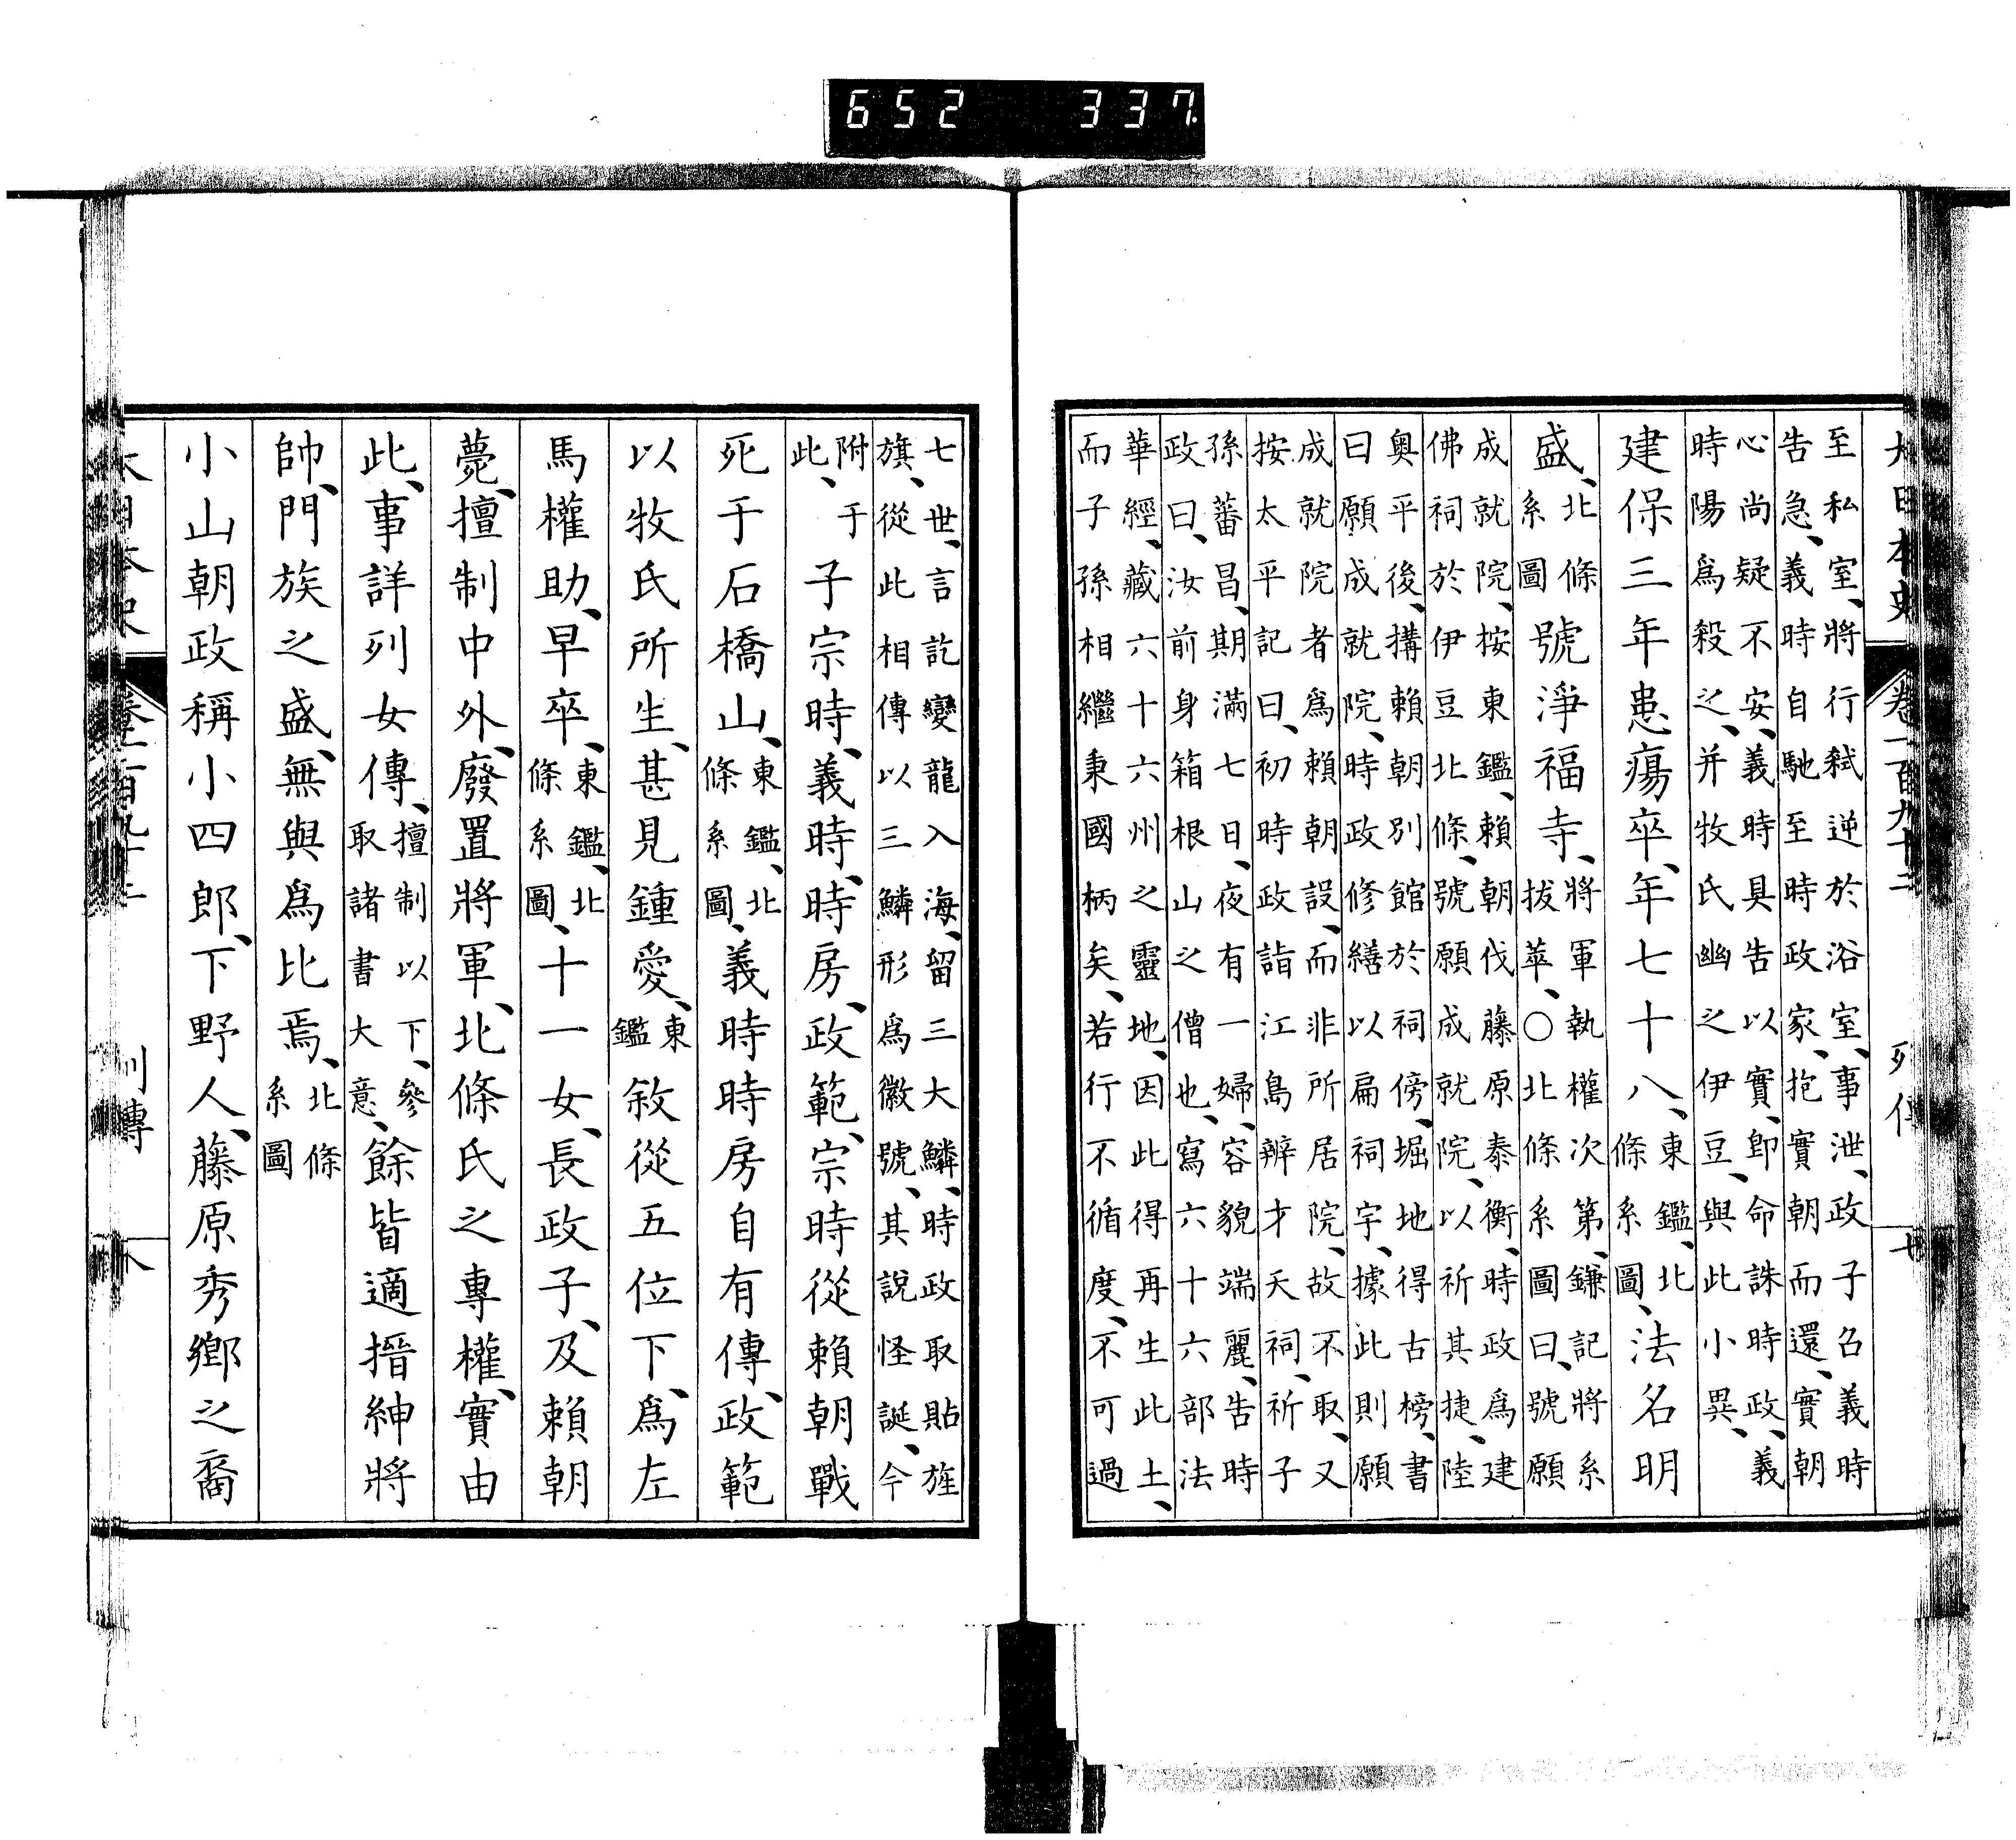 大日本史 卷一百九十二 列傳 七
至私室、將行弑逆於浴室、事泄、政子召義時
告急、義時自馳至時政家、抱實朝而還、實朝
心尚疑不安、義時具告以實、卽命誅時政、義
時陽爲殺之、并牧氏幽之伊豆、與此小異、
建保三年患瘍卒、年七十八、東鑑、北條系圖、法名明
盛、北條系圖號淨福寺、將軍執權次第、鎌記將系拔萃、〇北條系圖曰、號願
成就院、按東鑑、賴朝伐藤原泰衡、時政爲建
佛祠於伊豆北條、號願成就院、以祈其捷、陸
奧平後、搆賴朝別館於祠傍、堀地得古榜、書
曰願成就院、時政修繕以扁祠宇、據此則願
成就院者爲賴朝設、而非所居院、故不取、又
按太平記曰、初時政詣江島辨才天祠、祈子
孫蕃昌、期滿七日、夜有一婦、容貌端麗、告時
政曰、汝前身箱根山之僧也、寫六十六部法
華經、藏六十六州之靈地、因此得再生此土、
而子孫相繼秉國柄矣、若行不循度、不可過
七世、言訖變龍入海、留三大鱗、時政取貼旌
旗、從此相傳以三鱗形爲徽號、其說怪誕、今
附于此、子宗時、義時、時房、政範、宗時從賴朝戰
死于石橋山、東鑑、北條系圖、義時時房自有傳、政範
以牧氏所生、甚見鍾愛、東鑑敘從五位下、爲左
馬權助、早卒、東鑑、北條系圖、十一女、長政子、及賴朝
薨、擅制中外、廢置將軍、北條氏之專權、實由
此、事詳列女傳、擅制以下、參取諸書大意、餘皆適搢紳將
帥、門族之盛、無與爲比焉、北條系圖
小山朝政稱小四郎、下野人、藤原秀鄉之裔
大日本史 卷一百九十二 列傳 八
652 337.